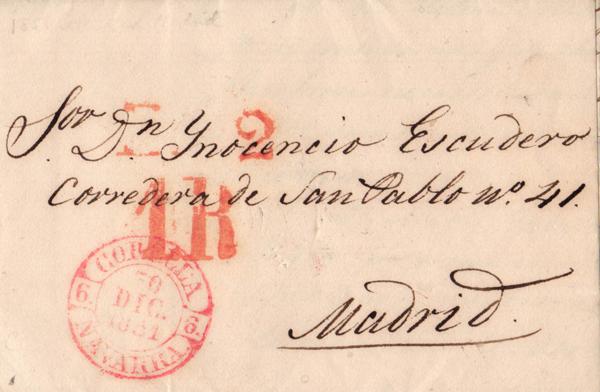 Sor Dn Ynocencio Escudero
E 2
Corredera de San Pablo nº. 41.
1R
CORELLA
30
DIC.
1851
6. 6.
NAVARRA
Madrid.